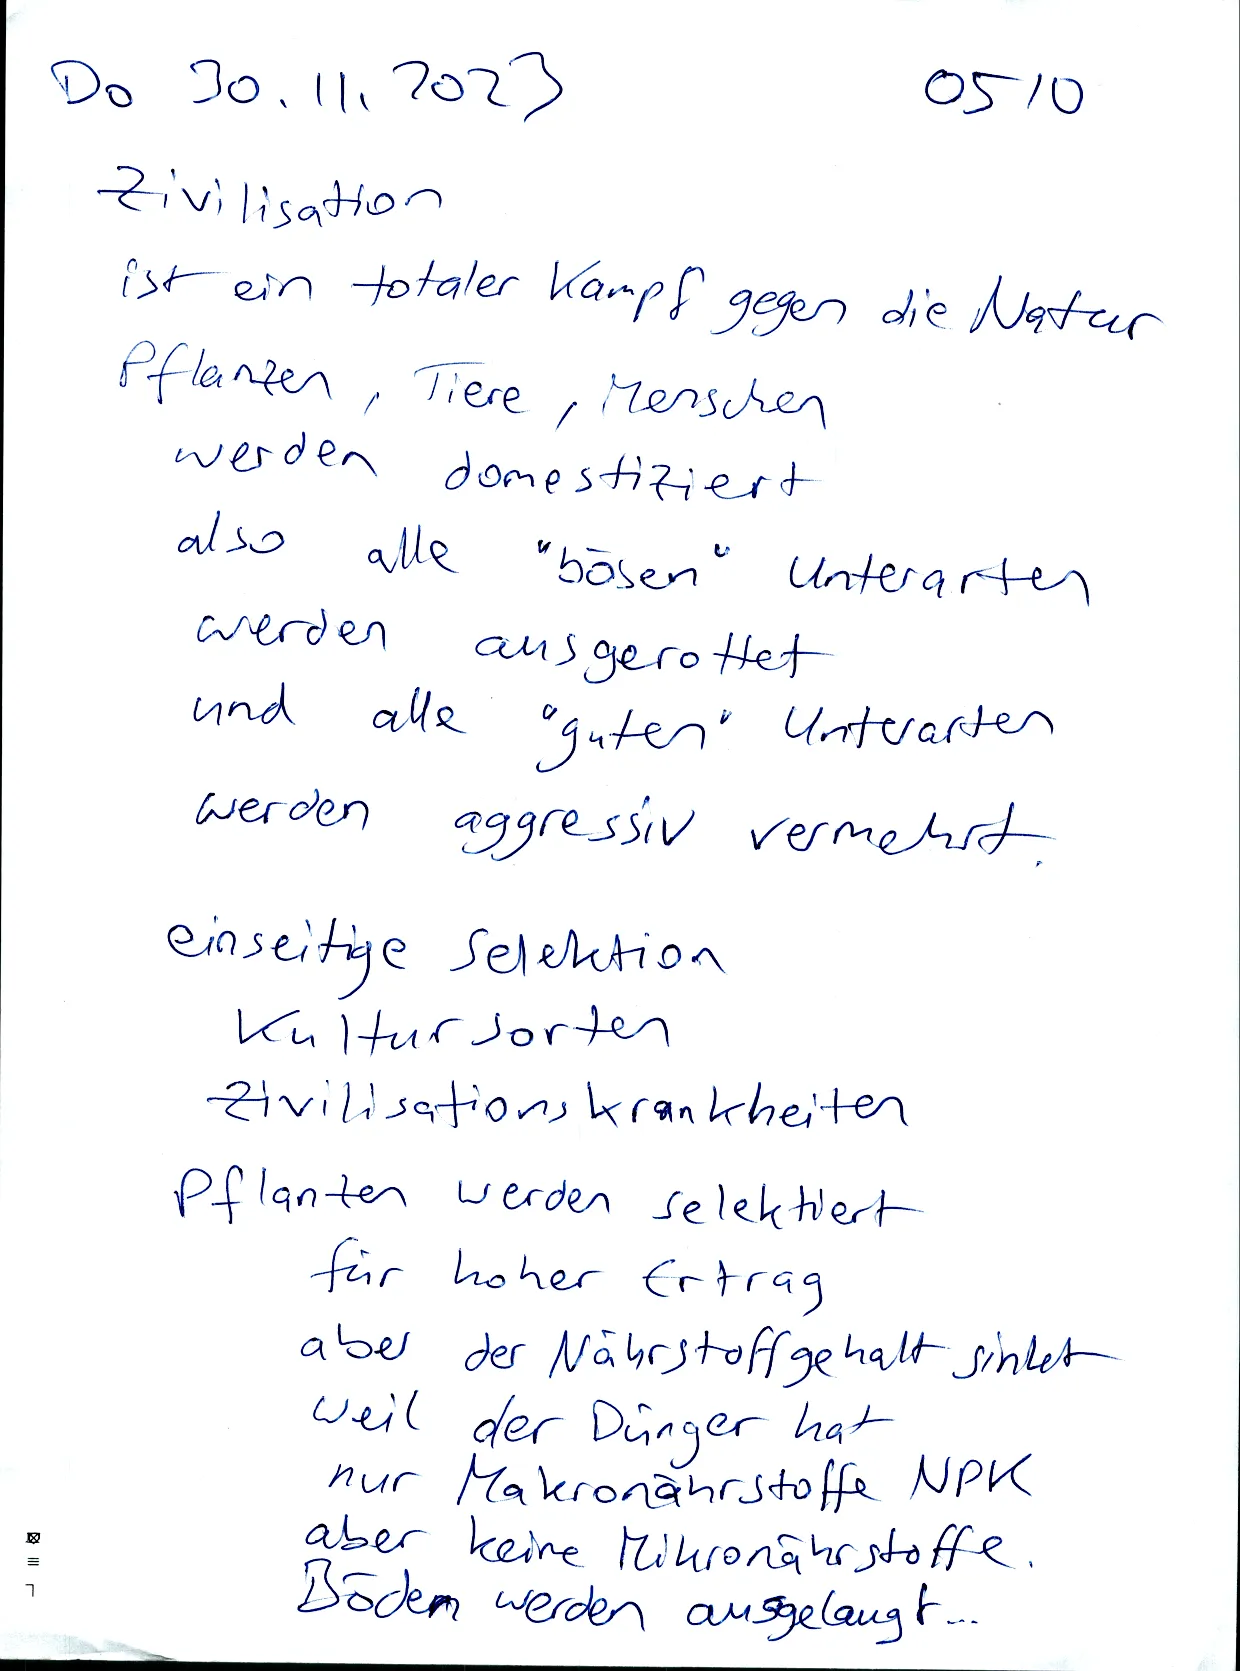 Do 30.11.2023 0510
Zivilisation
ist ein totaler Kampf gegen die Natur
Pflanzen, Tiere, Menschen
werden domestiziert
also alle "bösen" Unterarten
werden ausgerottet
und alle "guten" Unterarten
werden aggressiv vermehrt.
einseitige Selektion
Kultursorten
Zivilisationskrankheiten
Pflanzen werden selektiert
für hoher Ertrag
aber der Nährstoffgehalt sinket
weil der Dünger hat
nur Makronährstoffe NPK
aber keine Mikronährstoffe.
Böden werden ausgelaugt...